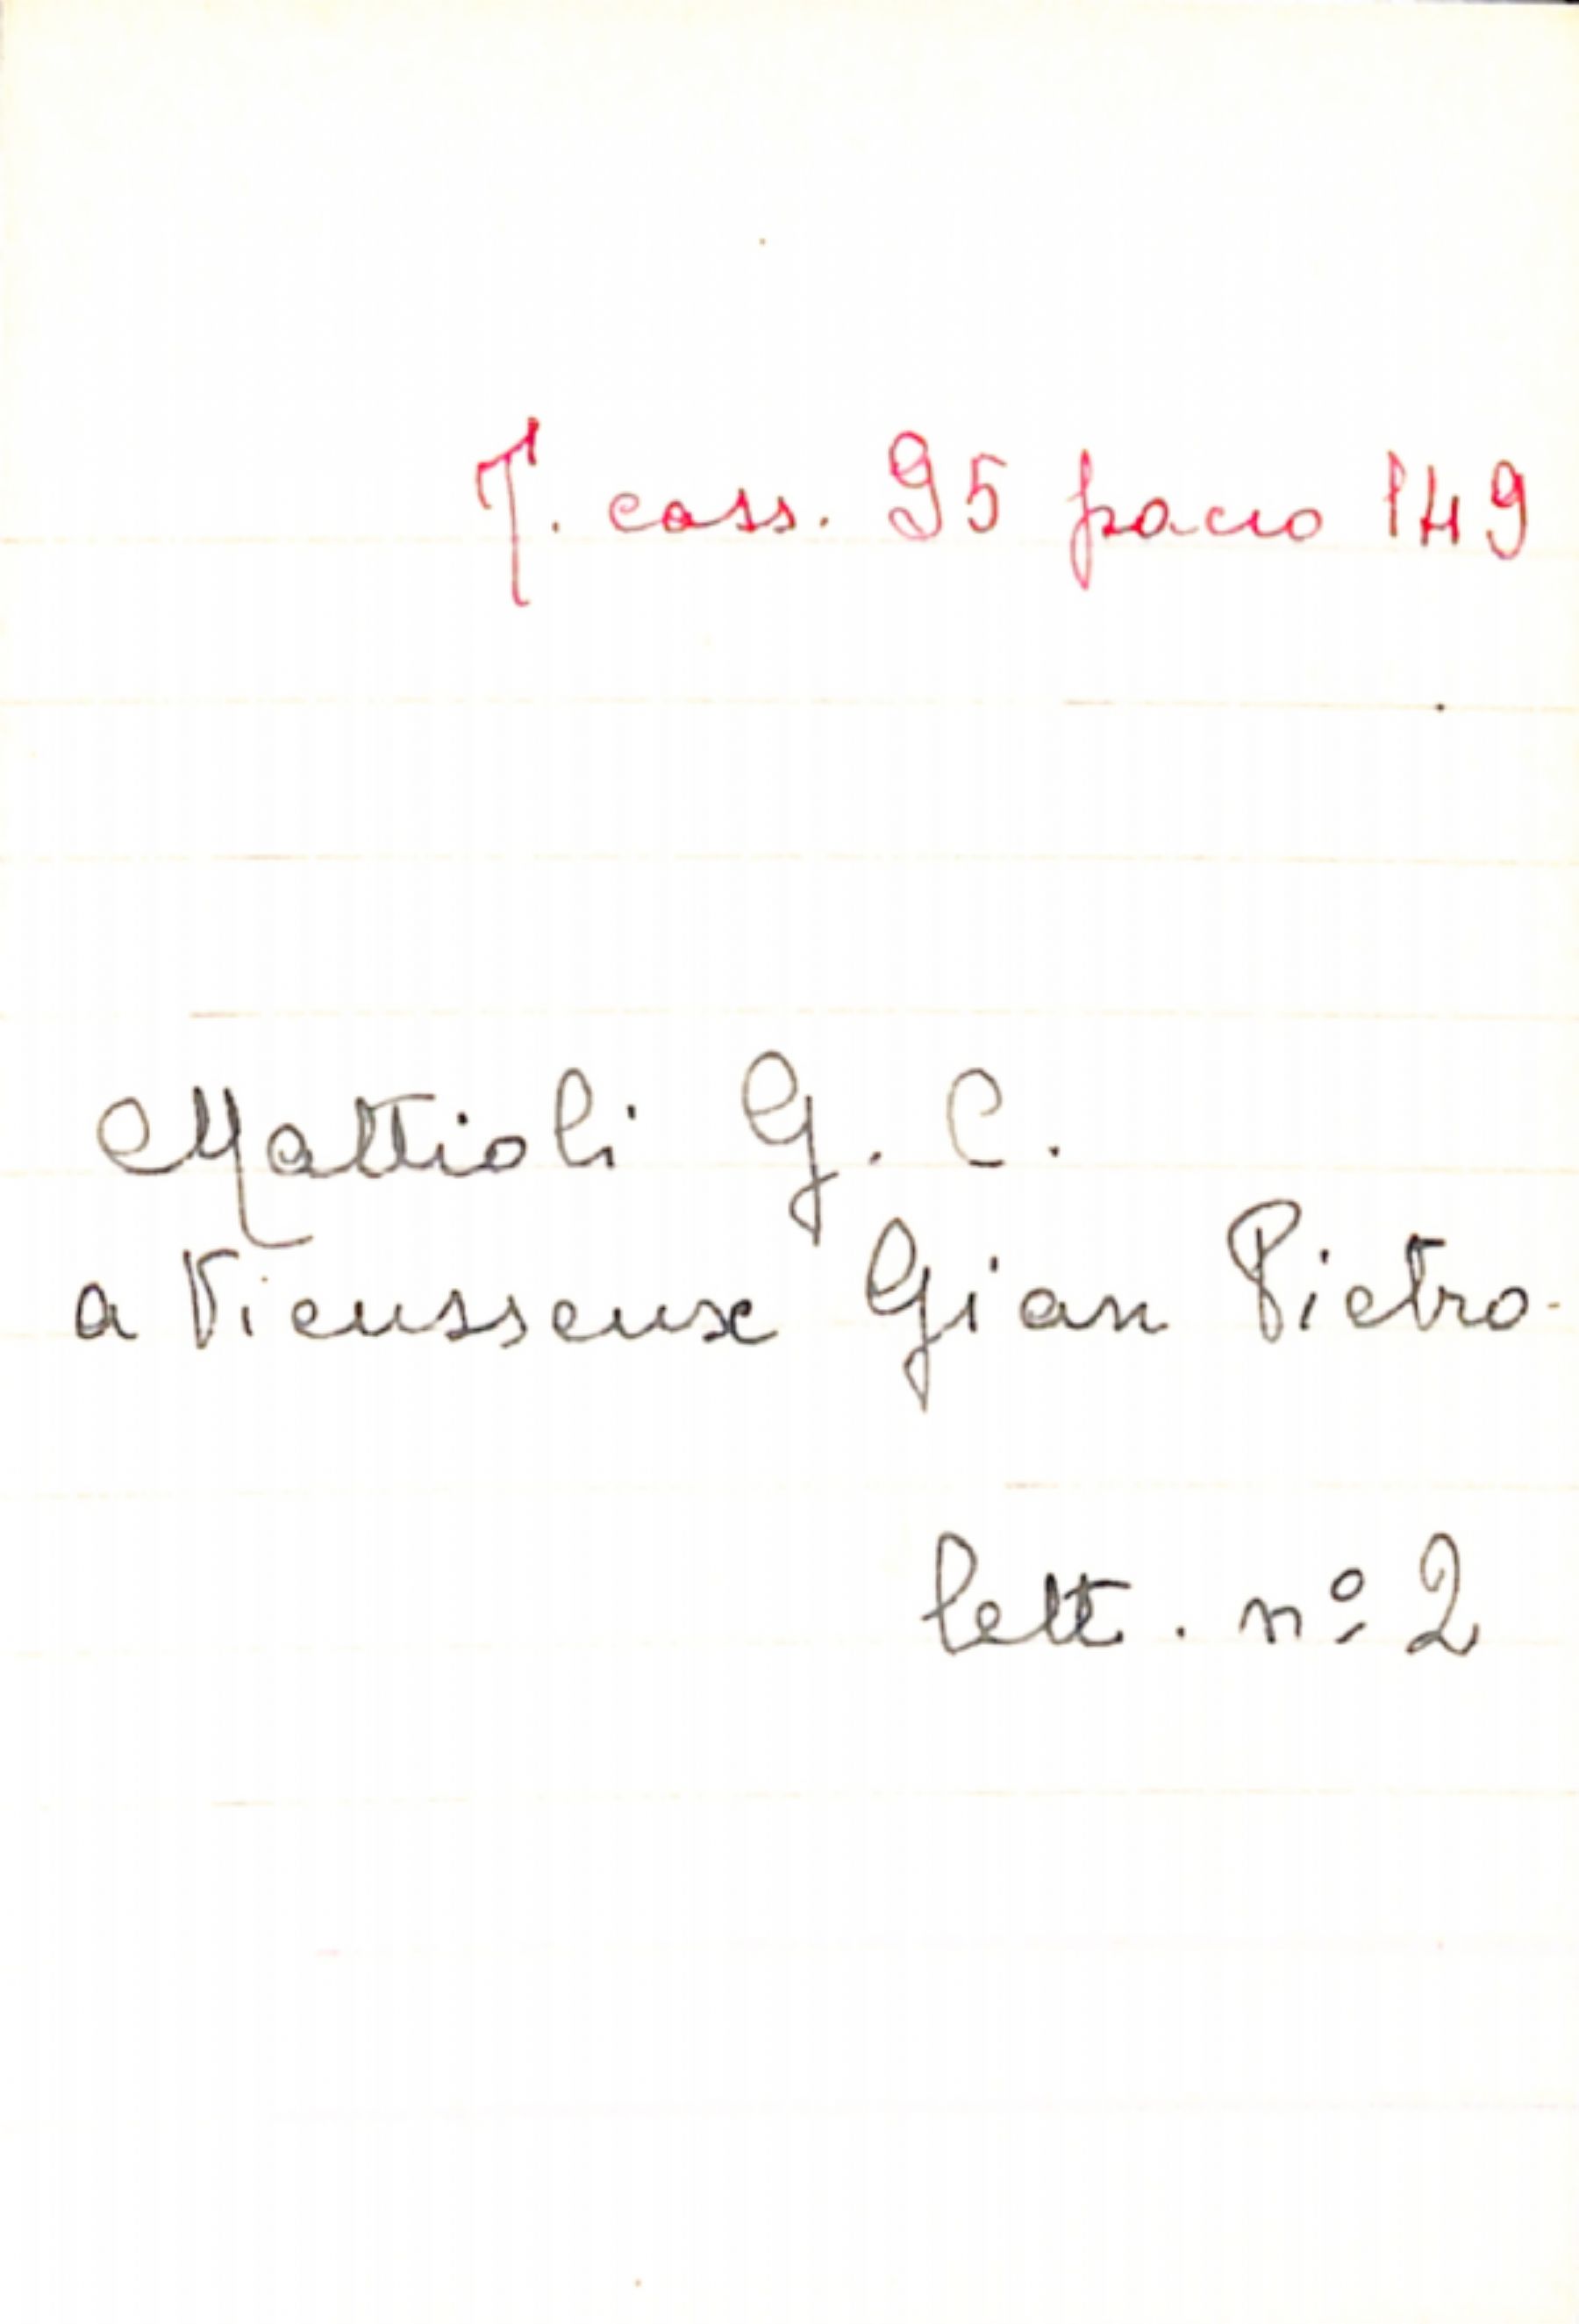 T. cass. 95 pacco 149
Mattioli G. C.
a Vieusseux Gian Pietro.
lett. nº 2